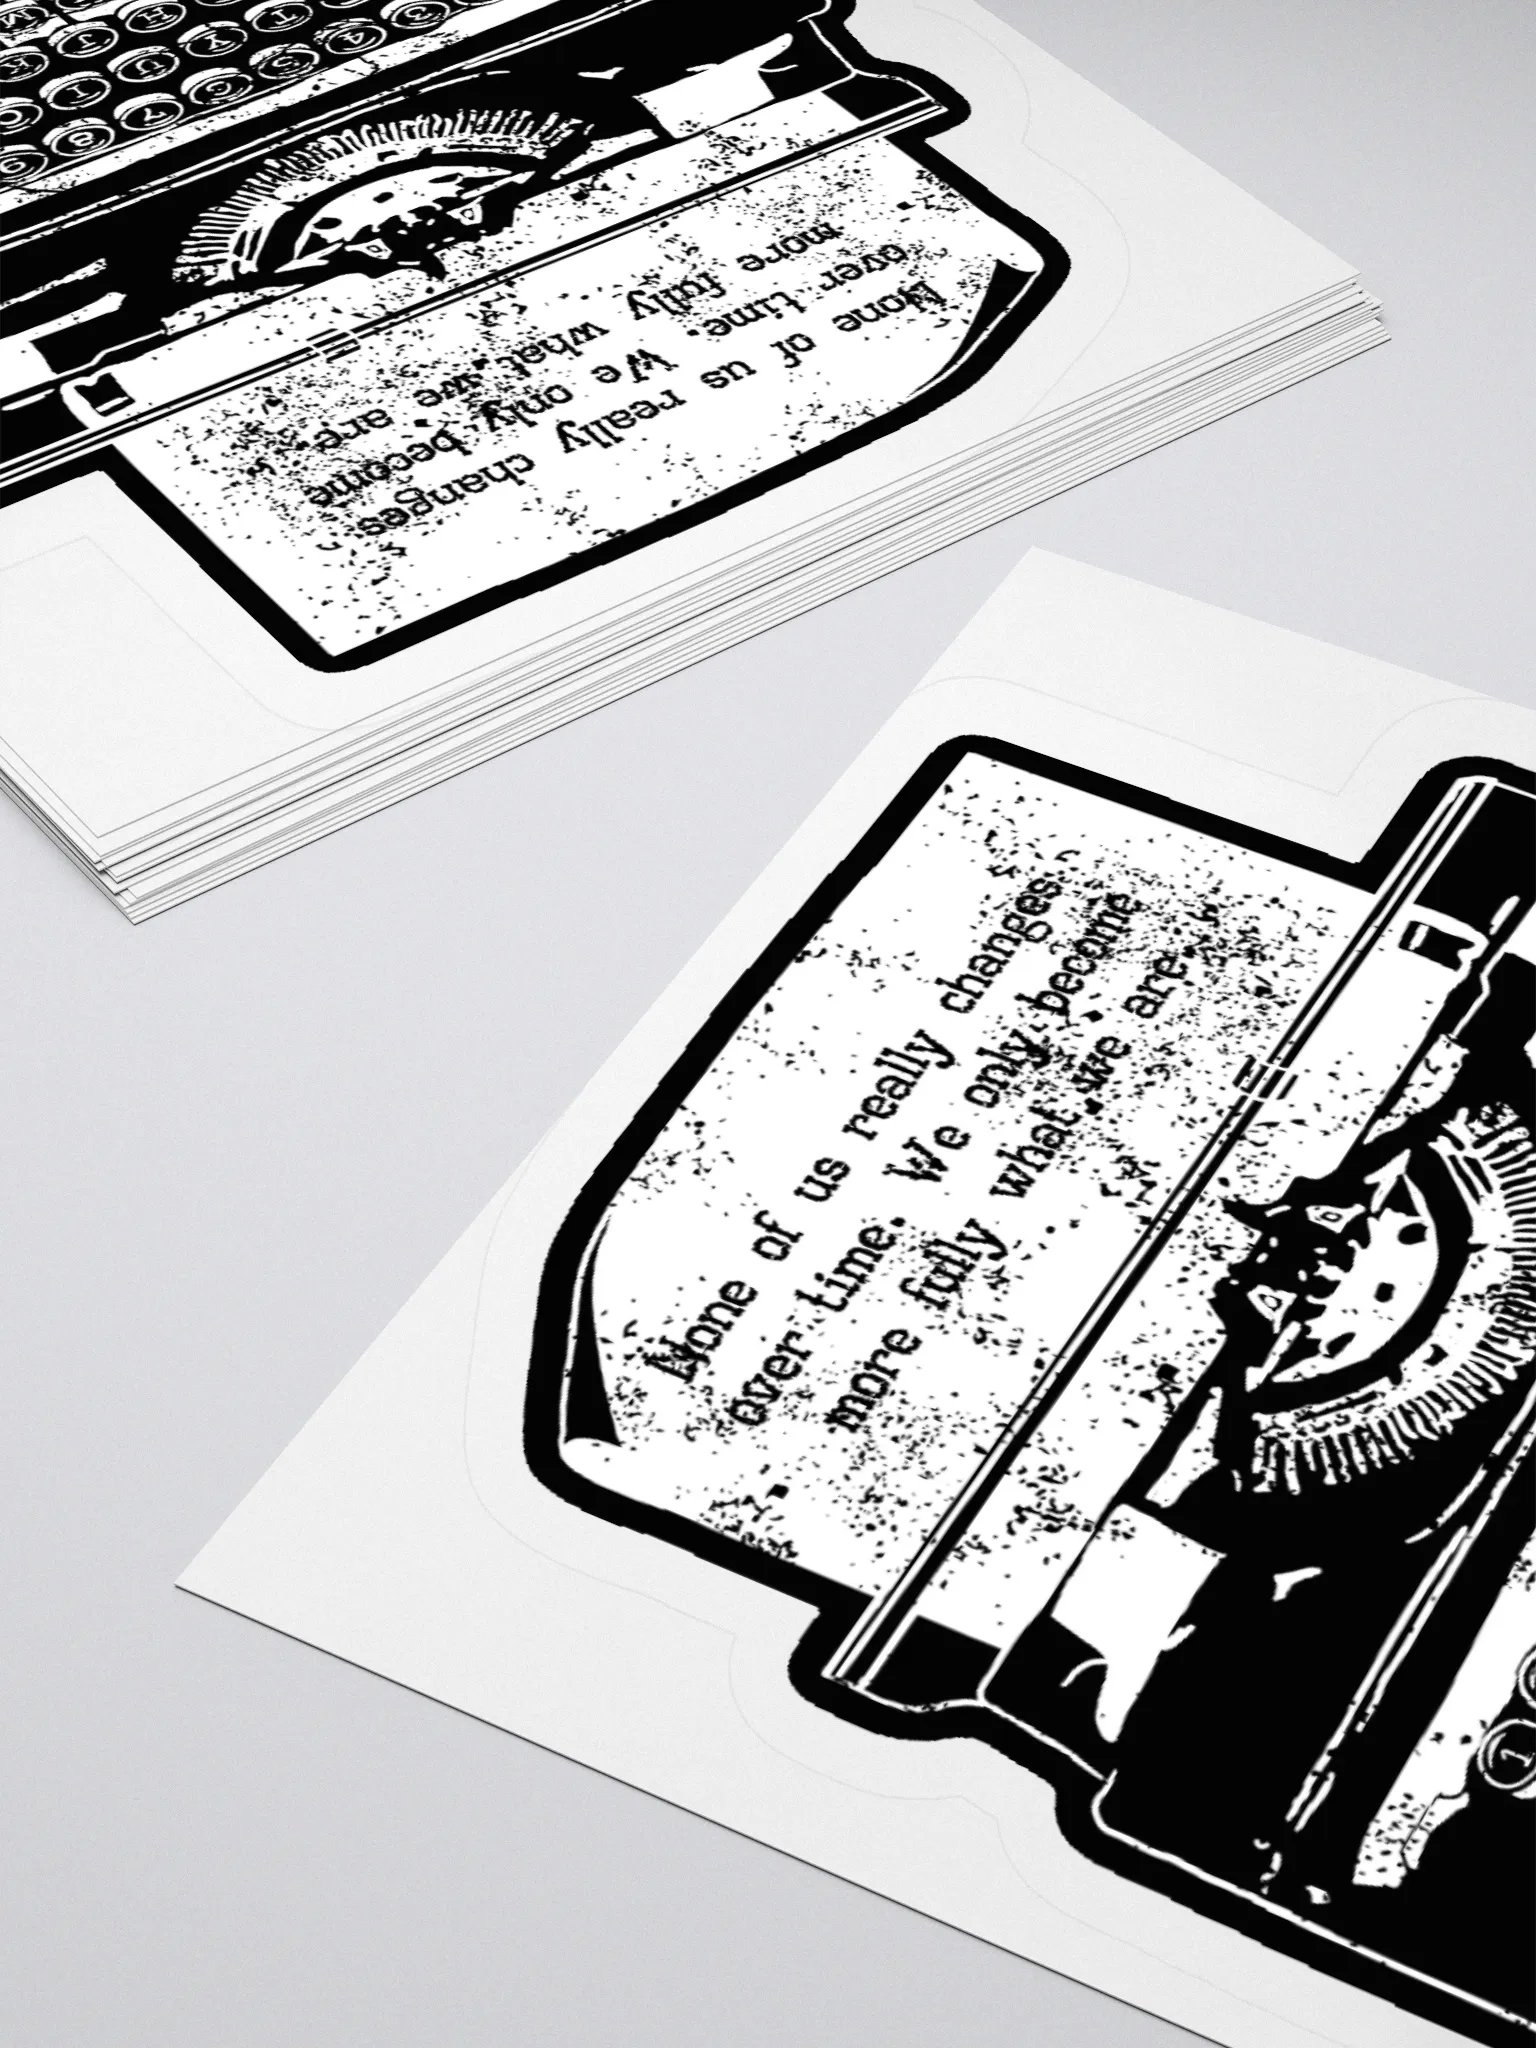 None of us really changes
over time. We only become
more fully what we are
None of us really changes
over time. We only become
more fully what we are
M
H T 3
K J Y 4
I U 5
O 8 7 6
9
1